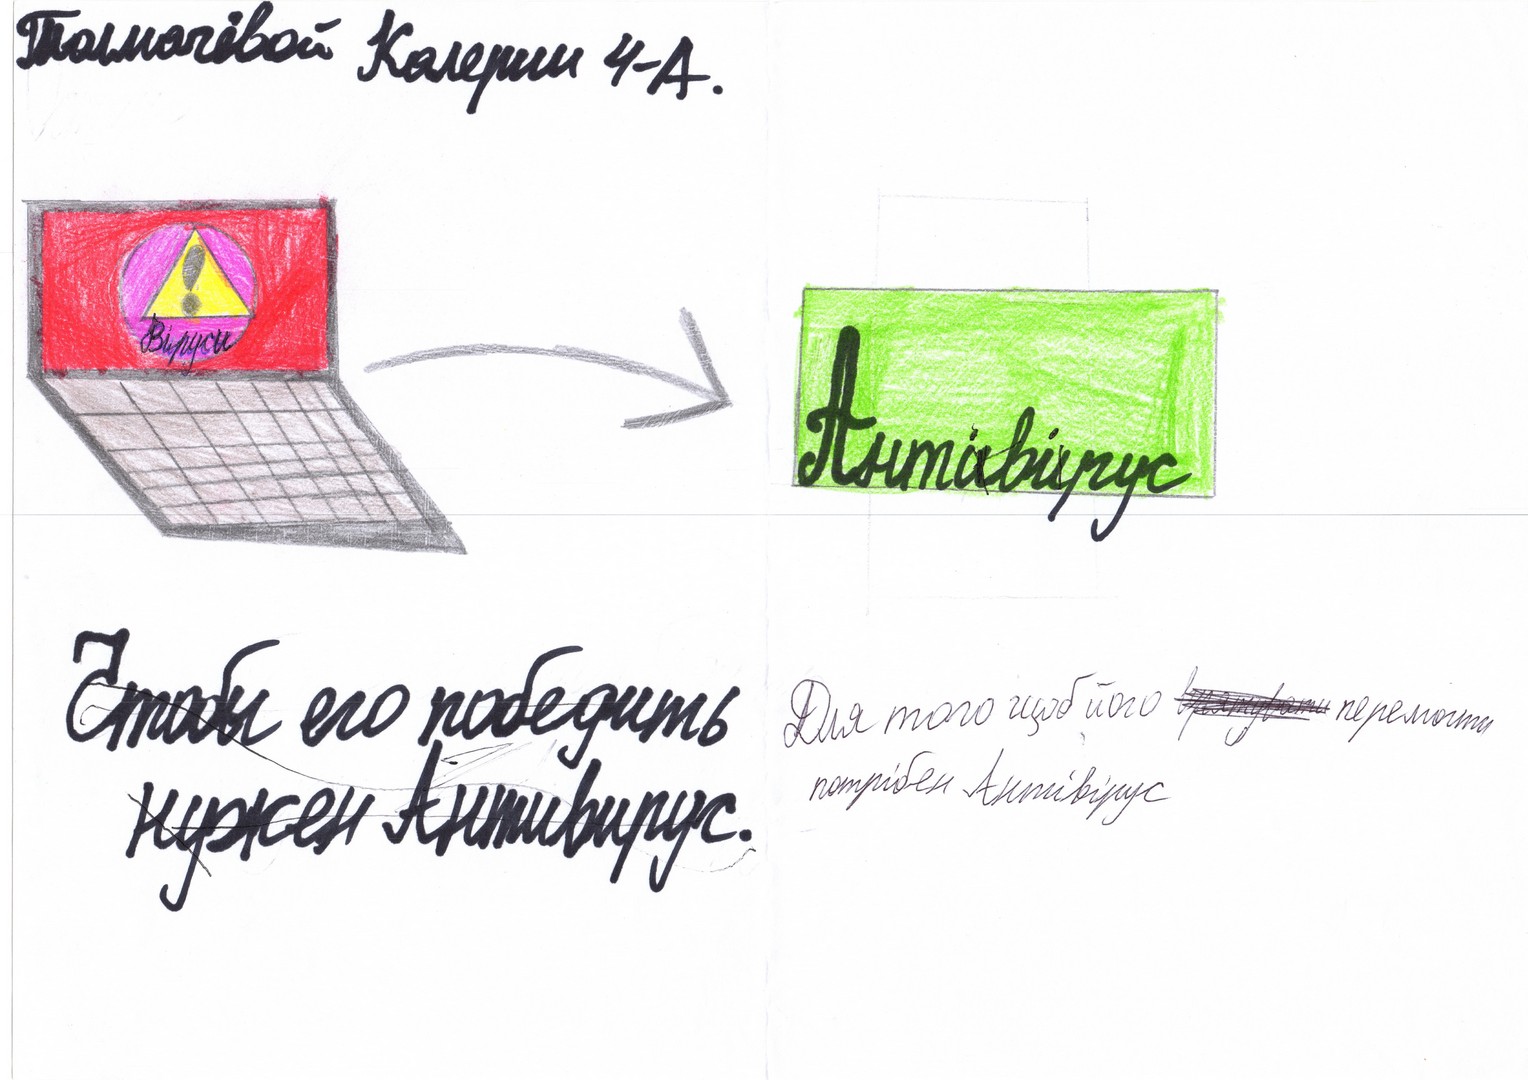 Толмачёвой Калерии 4-А.
Віруси
Антівірус
Чтобы его победить
нужен Антивирус.
Для того щоб його перемогти
потрібен Антівірус